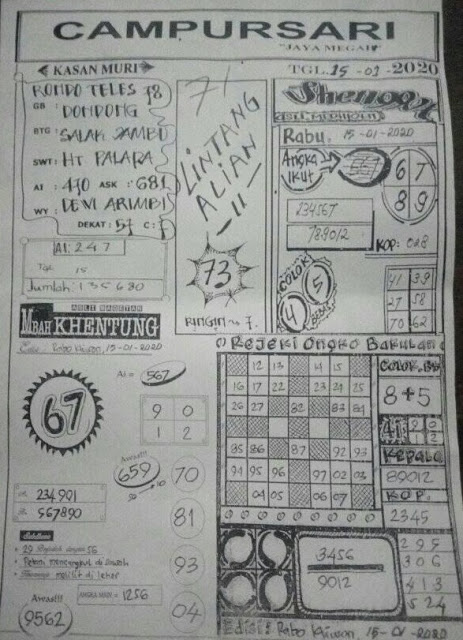 CAMPURSARI
"JAYA MEGAH"
KASAN MURI
TGL. 15-01-2020
RONDO TELES 78
GB : DONDONG
BTG : SALAK JAMBU
SWT : HT PALARA
AI : 470 ASK : 681
WY : DEWI ARIMBI
DEKAT : 57 C : 7
AI : 2 4 7
TGL 15
Jumlah : 1 3 5 6 8 0
71
LINTANG
ALIAN
-11-
73
RINGIN no 7.
Rabu, 15-01-2020
Angka
Ikut
67
89
234567
789012
KOP : 028
COLOK
4 5
41 39
27 58
70 62
ASLI MAGETAN
MBAH KHENTUNG
Rabo Kliwon, 15-01-2020
67
AI = 567
9 0
1 2
659
70
81
93
04
234901
567890
ANGKA MAIN = 1256
9562
Rejeki Ongko Bakulan
12 13 14 15
16 17 22 23 24 25
26 27 32 83 84
85 86 87 92 93
94 95 96 97 02 03
04 05 06 07
COLOK, BB
8+5
AI 9 0
1 2
KEPALA
89012
KOP.
2345
3456
9012
295
306
413
524
Edisi : Rabo Kliwon, 15-01-2020